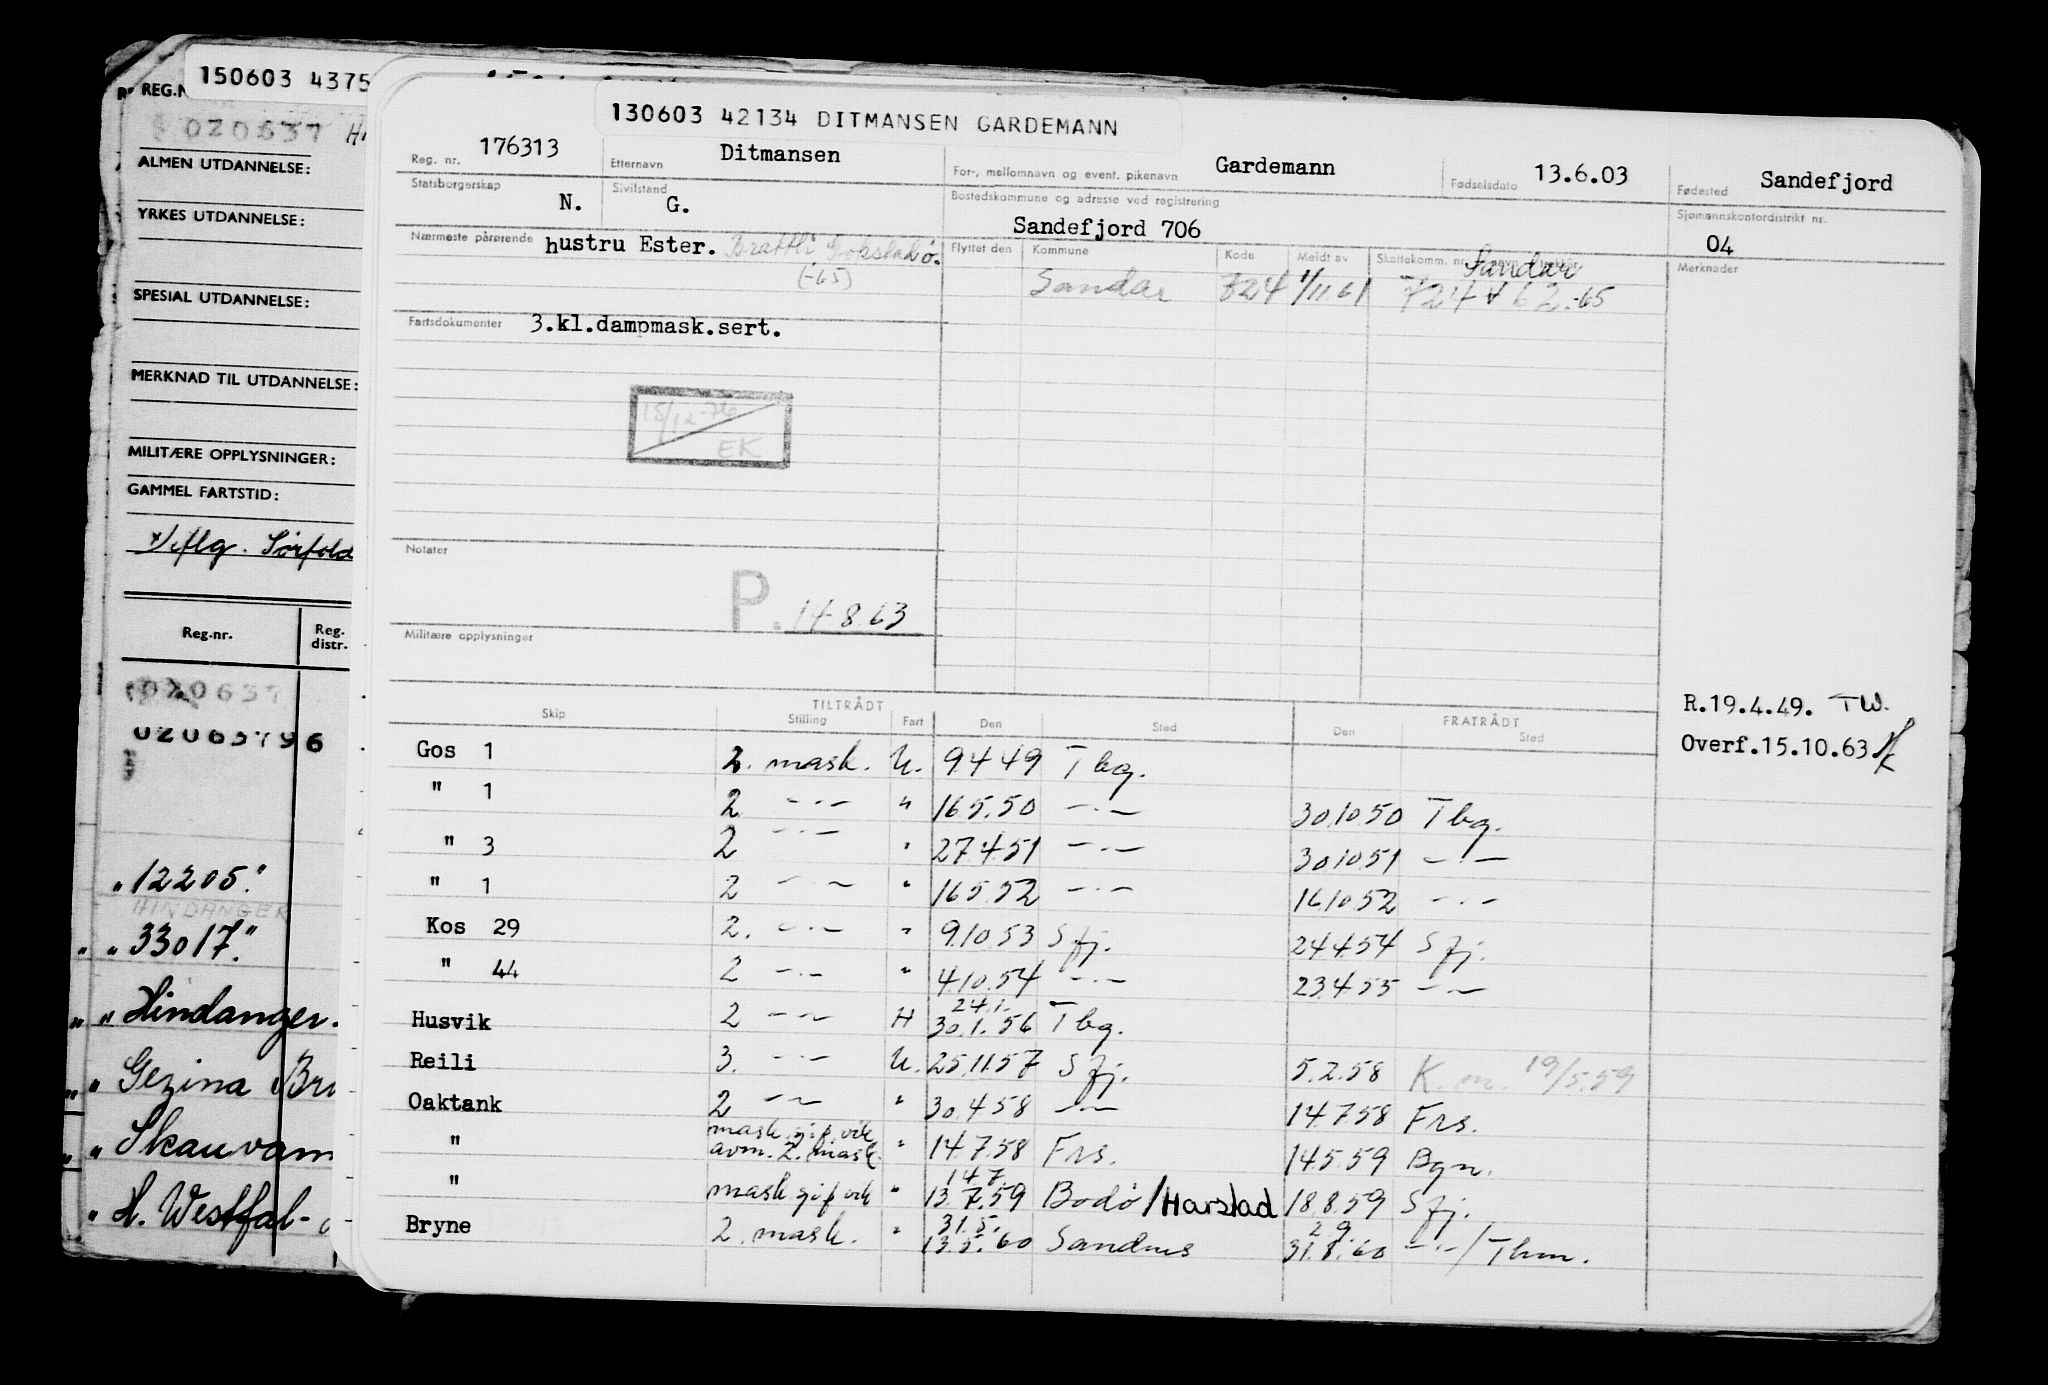 150603 4375
REG.N
020637 H
ALMEN UTDANNELSE:
YRKES UTDANNELSE:
SPESIAL UTDANNELSE:
MERKNAD TIL UTDANNELSE:
MILITÆRE OPPLYSNINGER:
GAMMEL FARTSTID:
Sørfold
Reg.nr. Reg. distr.
020637
"12205."
HINDANGER
" "33017."
" " Hindanger.
" " Gezina Br
" " Skauvam
" H. Westfal-
130603 42134 DITMANSEN GARDEMANN
Reg. nr. 176313 Etternavn Ditmansen For-, mellomnavn og event. pikenavn Gardemann Fødselsdato 13.6.03 Fødested Sandefjord
Statsborgerskap N. Sivilstand G. Bostedskommune og adresse ved registrering Sandefjord 706 Sjømannskontordistrikt nr. 04
Nærmeste pårørende hustru Ester. Brattli
(-65)
Flyttet den Kommune Kode Meldt av Skattekomm. nr. Sandar Merknader
Sandar 724 1/11.61 724 62.-65
Fartsdokumenter 3.kl.dampmask.sert.
15/12-76
EK
Notater
P. 14-8.63
Militære opplysninger
R.19.4.49. TW.
Overf.15.10.63
TILTRÅDT FRATRÅDT
Skip Stilling Fart Den Sted Den Sted
Gos 1 2. mask. U. 9449 Tbg.
" 1 2 -·- " 165.50 -·- 301050 Tbg.
" 3 2 -·- " 27.4.51 -·- 301051 -·-
" 1 2 -·- " 165.52 -·- 161052 -·-
Kos 29 2. -·- " 9.10 53 Sfj. 24454 Sfj.
" 44 2 -·- " 4.10.54 -·- 23.4.55 -·-
24.1.
Husvik 2 -·- H 30.1.56 Tbg.
Reili 3. -·- U. 25.11.57 Sfj. 5.2.58 K. m. 19/5.59
Oaktank 2 -·- " 30.4.58 -·- 14.7.58 Frs.
"
avm. 2. mask. " 14.7.58 Frs. 14.5.59 Bgn.
14.7.
" mask " 13.7.59 Bodø/Harstad 18.8.59 Sfj.
31.5. 2 9.
Bryne 2. mask. " 13.5.60 Sandnes 31.8.60 -·-/Thm.